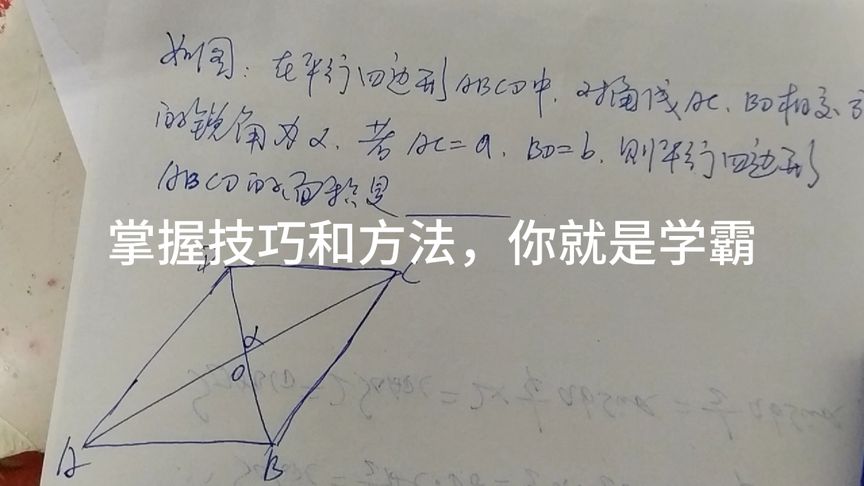 如图：在平行四边形ABCD中，对角线AC、BD相交
的锐角为α，若AC=a，BD=b，则平行四边形
ABCD的面积是
掌握技巧和方法，你就是学霸
D
C
α
O
A
B